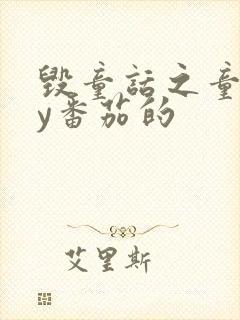 毁童话之童
y番茄的
艾里斯